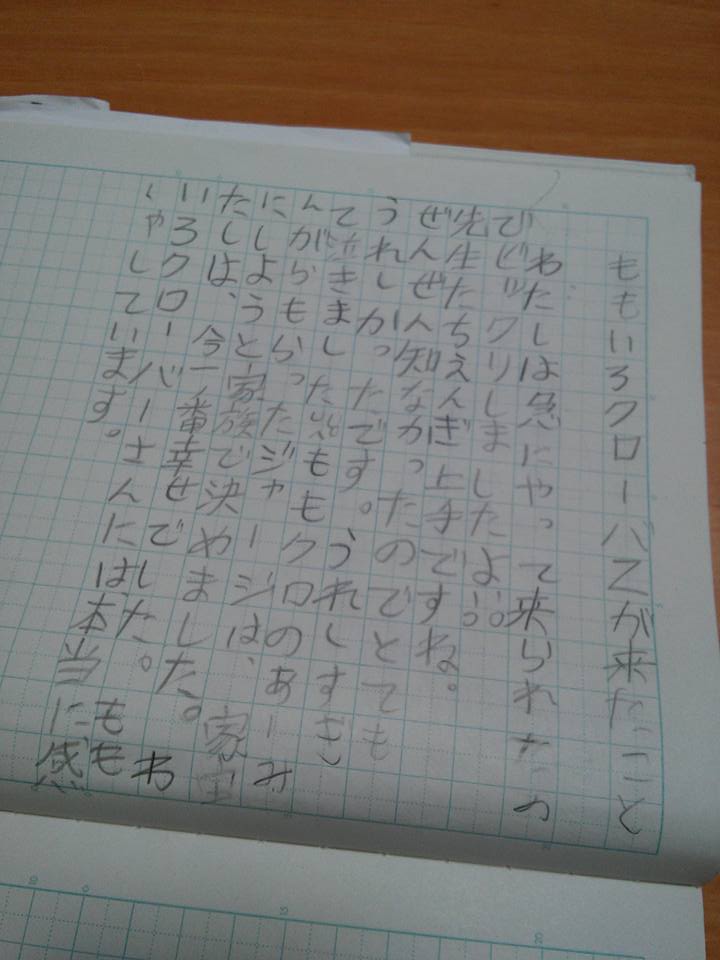 ももいろクローバZが来たこと
わたしは急にやって来られたの
でビックリしましたよ。
先生たちえんぎ上手ですね。
ぜんぜん知なかったのでとても
うれしかったです。うれしすぎ
て泣きました。ももクロのあーみ
んがらもらったジャージは、家宝
にしようと家族で決めました。わ
たしは、今一番幸せでした。もも
いろクローバーさんには本当に感
しゃしています。